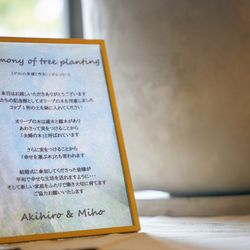 mony of tree planting
本日はお越しいただきありがとうございます
たちの記念樹としてオリーブの木を用意しました
コップ1杯の土を鉢に入れてください
オリーブの木は雄木と雌木があり
あわさって実をつけることから
「夫婦の木」と呼ばれています
さらに実をつけることから
「幸せを運ぶ木」とも言われます
結婚式に参加してくださった皆様が
平和で幸せな生活を送れますように・・・
そして新しい家族をふたりで築き大切に育てます
ご協力お願いいたします
Akihiro & Miho